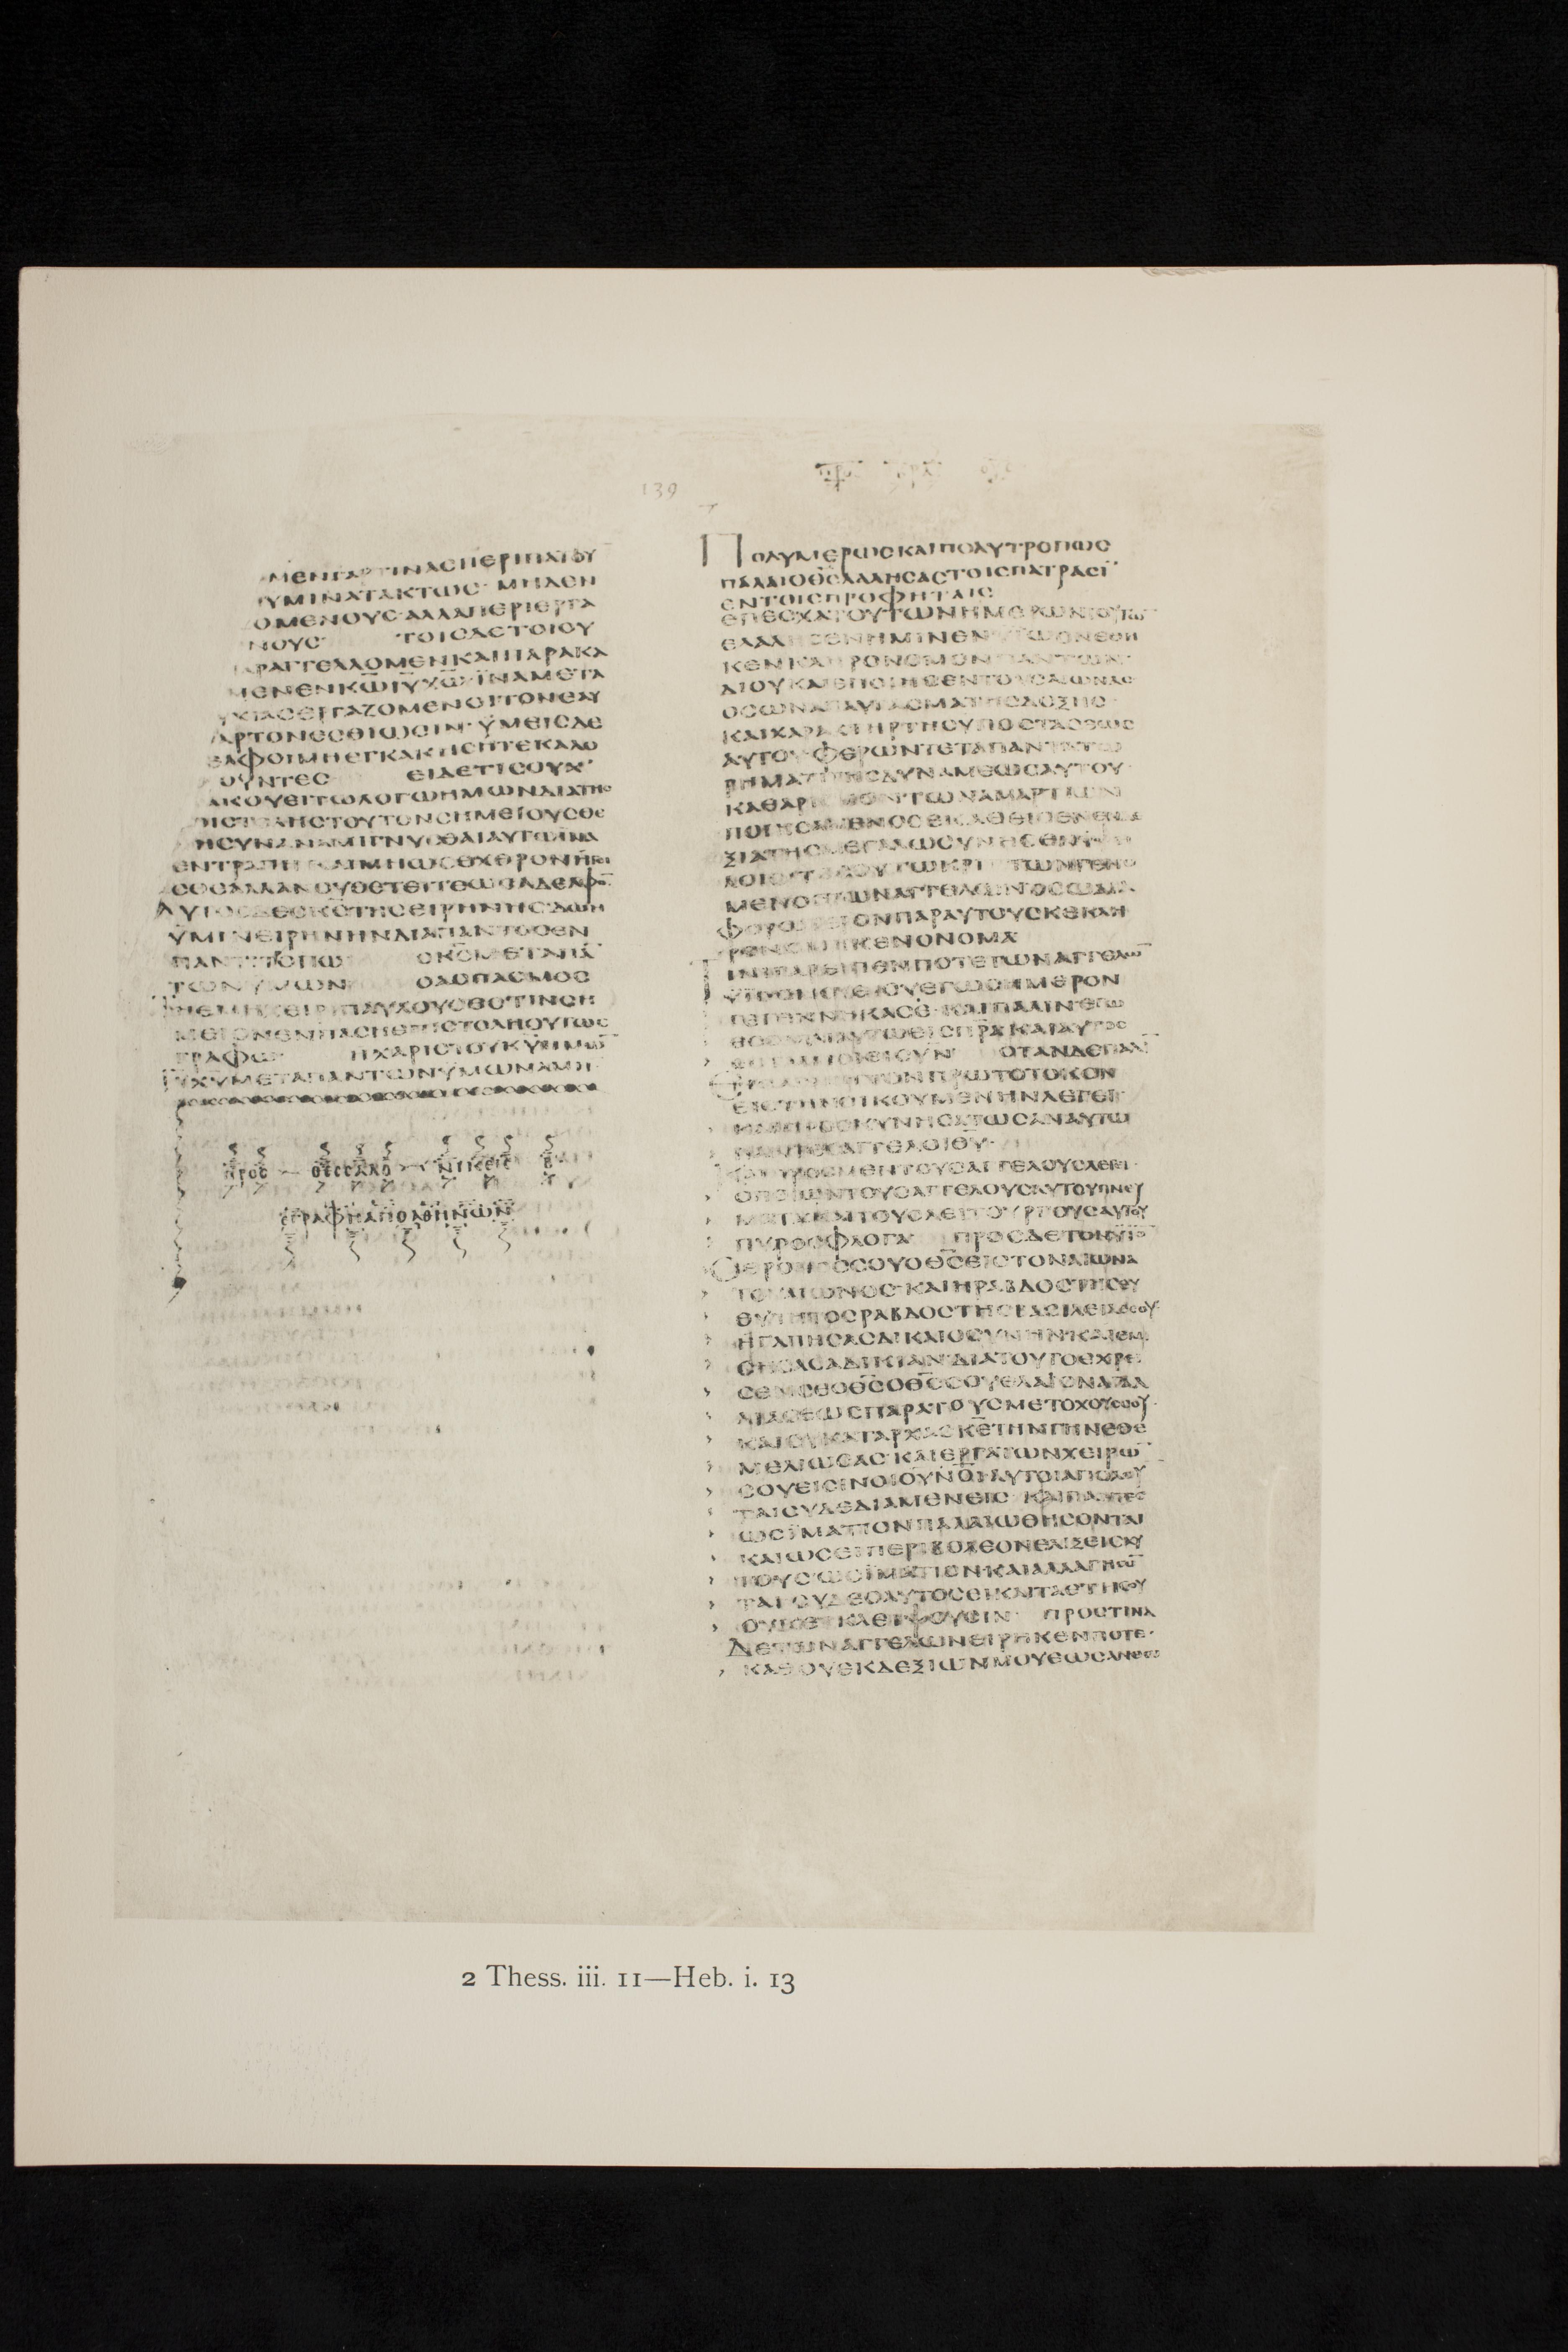 139
ΜΕΝΓΑΡΤΙΝΑCΠΕΡΙΠΑΤΟΥ
ΥΜΙΝΑΤΑΚΤΩC· ΜΗΔΕΝ
ΟΜΕΝΟΥC·ΑΛΛΑΠΕΡΙΕΡΓΑ
ΝΟΥC ΤΟΙCΔΕΤΟΙΟΥ
ΡΑΓΓΕΛΛΟΜΕΝΚΑΙΠΑΡΑΚΑ
ΜΕΝΕΝΚΩΙΥΧΩ·ΙΝΑΜΕΤΑ
ΥΧΙΑCΕΡΓΑΖΟΜΕΝΟΙΤΟΝΕΑΥ
ΑΡΤΟΝΕCΘΙΩCΙΝ· ΥΜΕΙCΔΕ
ΔΕΛΦΟΙΜΗΕΓΚΑΚΗCΗΤΕΚΑΛΟ
ΟΥΝΤΕC ΕΙΔΕΤΙCΟΥΧ
ΑΚΟΥΕΙΤΩΛΟΓΩΗΜΩΝΔΙΑΤΗC
ΠΙCΤΟΛΗCΤΟΥΤΟΝCΗΜΕΙΟΥCΘΕ
ΜΗCΥΝΑΝΑΜΙΓΝΥCΘΑΙΑΥΤΩΙΝΑ
ΕΝΤΡΑΠΗ ΚΑΙΜΗΩCΕΧΘΡΟΝΗΓΕΙ
CΘΕΑΛΛΑΝΟΥΘΕΤΕΙΤΕΩCΑΔΕΛΦΟ
ΑΥΤΟCΔΕΟΚCΤΗCΕΙΡΗΝΗCΔΩΗ
ΥΜΙΝΕΙΡΗΝΗΝΔΙΑΠΑΝΤΟCΕΝ
ΠΑΝΤΙΤΡΟΠΩ ΟΚCΜΕΤΑΠΑ
ΤΩΝΥΜΩΝ ΟΑCΠΑCΜΟC
ΤΗΕΜΗΧΕΙΡΙΠΑΥΛΟΥΟΕCΤΙΝCΗ
ΜΕΙΟΝΕΝΠΑCΗΕΠΙCΤΟΛΗΟΥΤΩC
ΓΡΑΦΩ ΗΧΑΡΙCΤΟΥΚΥΗΜΩ
ΙΥΧΥΜΕΤΑΠΑΝΤΩΝΥΜΩΝΑΜΗ
ΠΡΟC ΘΕCCΑΛΟ ΝΙΚΕΙC Β
ΕΓΡΑΦΗΑΠΟΑΘΗΝΩΝ
ΠΟΛΥΜΕΡΩCΚΑΙΠΟΛΥΤΡΟΠΩC
ΠΑΛΑΙΟΘCΛΑΛΗCΑCΤΟΙCΠΑΤΡΑCΙ
ΕΝΤΟΙCΠΡΟΦΗΤΑΙC
ΕΠΕCΧΑΤΟΥΤΩΝΗΜΕΡΩΝΤΟΥΤΩ
ΕΛΑΛΗCΕΝΗΜΙΝΕΝΥΙΩΟΝΕΘΗ
ΚΕΝΚΛΗΡΟΝΟΜΟΝΠΑΝΤΩΝ·
ΔΙΟΥΚΑΙΕΠΟΙΗCΕΝΤΟΥCΑΙΩΝΑC
ΟCΩΝΑΠΑΥΓΑCΜΑΤΗCΔΟΞΗC
ΚΑΙΧΑΡΑΚΤΗΡΤΗCΥΠΟCΤΑCΕΩC
ΑΥΤΟΥΦΕΡΩΝΤΕΤΑΠΑΝΤΑΤΩ
ΡΗΜΑΤΙΤΗCΔΥΝΑΜΕΩCΑΥΤΟΥ
ΚΑΘΑΡΙCΜΟΝΤΩΝΑΜΑΡΤΙΩΝ
ΠΟΙΗCΑΜΕΝΟCΕΚΑΘΙCΕΝΕΝΔΕ
ΞΙΑΤΗCΜΕΓΑΛΩCΥΝΗCΕΝΥΨΗ
ΛΟΙCΤΟCΟΥΤΩΚΡΙΤΤΩΝΓΕΝΟ
ΜΕΝΟCΤΩΝΑΓΓΕΛΩΝΟCΩΔΙΑ
ΦΟΡΩΤΕΡΟΝΠΑΡΑΥΤΟΥCΚΕΚΛΗ
ΡΟΝΟΜΗΚΕΝΟΝΟΜΑ
ΤΙΝΙΓΑΡΕΙΠΕΝΠΟΤΕΤΩΝΑΓΓΕΛΩ
ΥΙΟCΜΟΥΕΙCΥΕΓΩCΗΜΕΡΟΝ
ΓΕΓΕΝΝΗΚΑCΕ· ΚΑΙΠΑΛΙΝΕΓΩ
ΕCΟΜΑΙΑΥΤΩΕΙCΠΡΑΚΑΙΑΥΤΟC
ΕCΤΑΙΜΟΙΕΙCΥΝ ΟΤΑΝΔΕΠΑΛΙ
ΕΙCΑΓΑΓΗΤΟΝΠΡΩΤΟΤΟΚΟΝ
ΕΙCΤΗΝΟΙΚΟΥΜΕΝΗΝΛΕΓΕΙ
ΚΑΙΠΡΟCΚΥΝΗCΑΤΩCΑΝΑΥΤΩ
ΠΑΝΤΕCΑΓΓΕΛΟΙΘΥ·
ΚΑΙΠΡΟCΜΕΝΤΟΥCΑΓΓΕΛΟΥCΛΕΓΕΙ·
ΟΠΟΙΩΝΤΟΥCΑΓΓΕΛΟΥCΑΥΤΟΥΠΝΕΥ
ΜΑΤΑΚΑΙΤΟΥCΛΕΙΤΟΥΡΓΟΥCΑΥΤΟΥ
ΠΥΡΟCΦΛΟΓΑ ΠΡΟCΔΕΤΟΝΥΙΟ
ΟΘΡΟΝΟCCΟΥΟΘCΕΙCΤΟΝΑΙΩΝΑ
ΤΟΥΑΙΩΝΟC·ΚΑΙΗΡΑΒΔΟCΤΗCΕΥ
ΘΥΤΗΤΟCΡΑΒΔΟCΤΗCΒΑCΙΛΕΙΑCCΟΥ
ΗΓΑΠΗCΑCΔΙΚΑΙΟCΥΝΗΝΚΑΙΕΜΙ
CΗCΑCΑΔΙΚΙΑΝ·ΔΙΑΤΟΥΤΟΕΧΡΙ
CΕΝCΕΟΘCΟΘCCΟΥΕΛΑΙΟΝΑΓΑΛ
ΛΙΑCΕΩCΠΑΡΑΤΟΥCΜΕΤΟΧΟΥCCΟΥ·
ΚΑΙCΥΚΑΤΑΡΧΑCΚΕΤΗΝΓΗΝΕΘΕ
ΜΕΛΙΩCΑC·ΚΑΙΕΡΓΑΤΩΝΧΕΙΡΩ
CΟΥΕΙCΙΝΟΙΟΥΝΟΙΑΥΤΟΙΑΠΟΛΟΥ
ΤΑΙCΥΔΕΔΙΑΜΕΝΕΙC ΚΑΙΠΑΝΤΕC
ΩCΙΜΑΤΙΟΝΠΑΛΑΙΩΘΗCΟΝΤΑΙ
ΚΑΙΩCΕΙΠΕΡΙΒΟΛΕΟΝΕΛΙΞΕΙCΑΥ
ΤΟΥCΩCΙΜΑΤΙΟΝΚΑΙΑΛΛΑΓΗCΟ
ΤΑΙCΥΔΕΟΑΥΤΟCΕΙΚΑΙΤΑΕΤΗCΟΥ
ΟΥΚΕΚΛΕΙΨΟΥCΙΝ ΠΡΟCΤΙΝΑ
ΔΕΤΩΝΑΓΓΕΛΩΝΕΙΡΗΚΕΝΠΟΤΕ·
ΚΑΘΟΥΕΚΔΕΞΙΩΝΜΟΥΕΩCΑΝΘΩ
2 Thess. iii. 11—Heb. i. 13